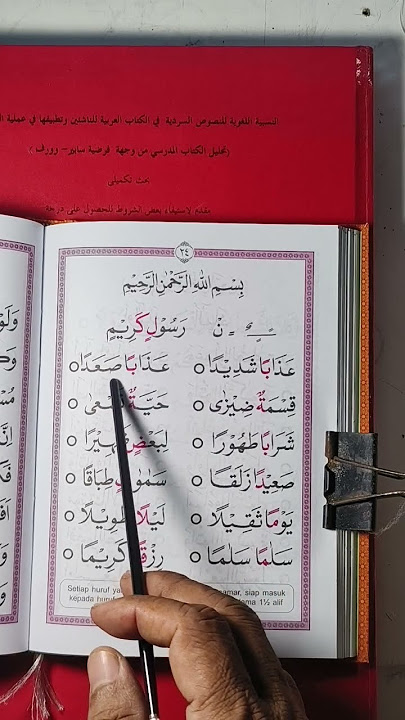 النسبية اللغوية للنصوص السردية في الكتاب العربية للناشئين وتطبيقها في عملية
(تحليل الكتاب المدرسي من وجهة فرضية سابير– وورف )
بحث تكميلي
مقدم لاستيفاء بعض الشروط للحصول على درجة
٢٤
بِسْمِ اللهِ الرَّحْمٰنِ الرَّحِيْمِ
= نْ رَسُوْلٍ كَرِيْمٍ
عَذَابًا شَدِيْدًا ○ عَذَابًا صَعَدًا ○
قِسْمَةٌ ضِيْزٰى ○ حَيَّةٌ
شَرَابًا طَهُوْرًا ○ لِبَعْضٍ ○
صَعِيْدًا زَلَقًا ○ سَمٰوٰتٍ طِبَاقًا ○
يَوْمًا ثَقِيْلًا ○ لَيْلًا طَوِيْلًا ○
سَلٰمًا سَلٰمًا ○ رِزْقًا كَرِيْمًا ○
Setiap huruf siap masuk
kepada 1½ alif